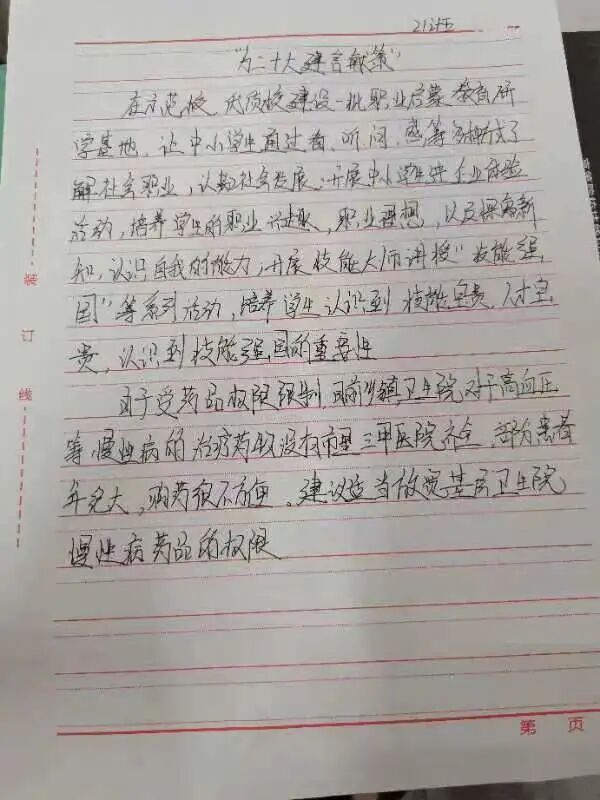 "为二十大建言献策"
在示范校、优质校建设一批职业启蒙教育研
学基地，让中小学生通过看、听、问、感等多种形式了
解社会职业，认知社会发展；开展中小学生进企业体验
活动，培养学生的职业兴趣、职业理想，以及探索新
知，认识自我的能力，开展技能大师讲授"技能强
国"等系列活动，培养学生认识到技能宝贵、人才宝
贵，认识到技能强国的重要性
由于受药品权限限制，目前乡镇卫生院对于高血压
等慢性病的治疗药物没有市里三甲医院齐全，部分患者
年纪大，购药很不方便。建议适当放宽基层卫生院
慢性病药品的权限
装
订
线
第 页